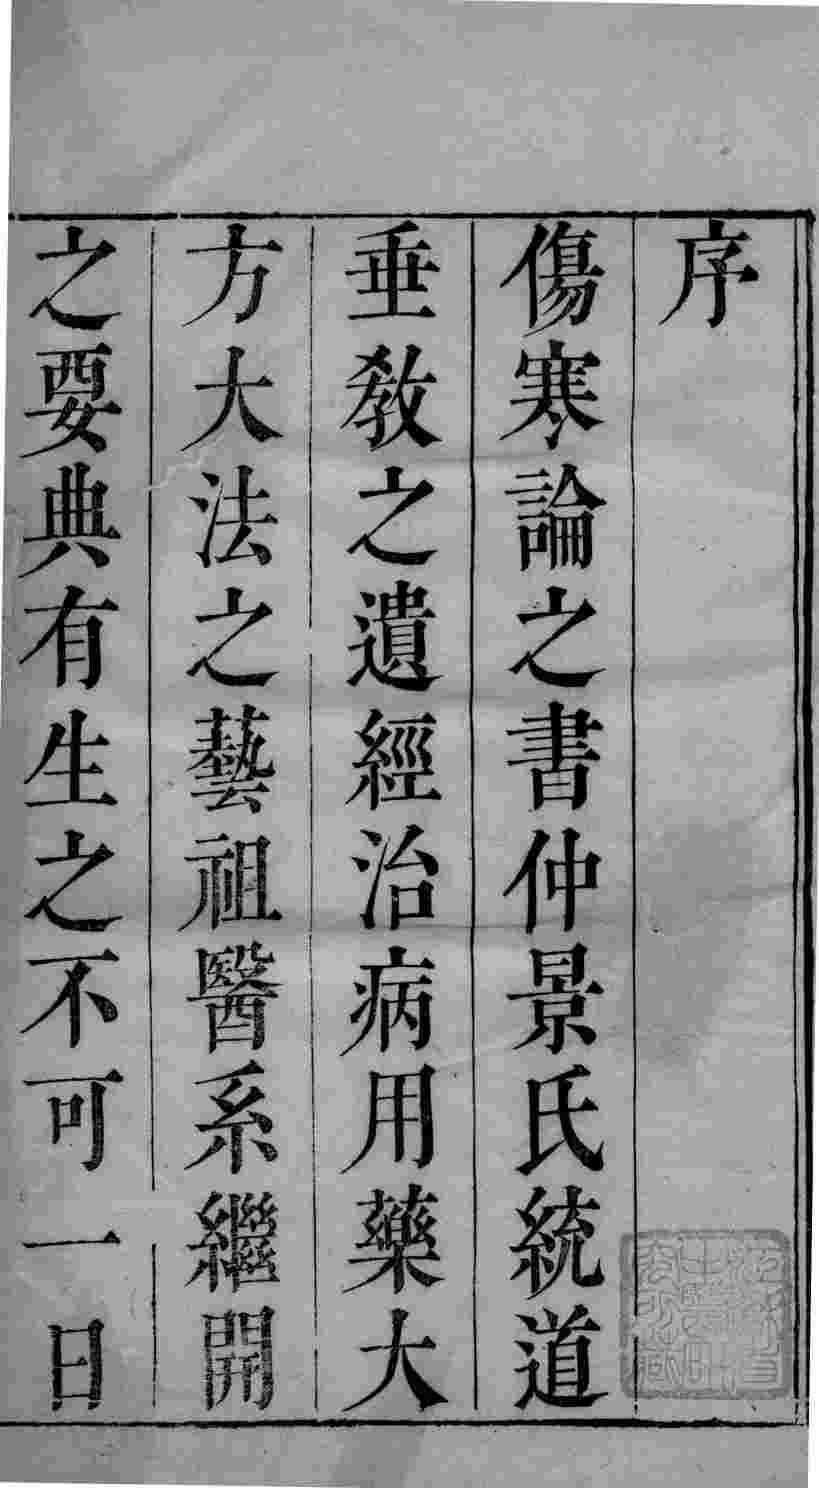 序
傷寒論之書仲景氏統道
垂敎之遺經治病用藥大
方大法之藝祖醫系繼開
之要典有生之不可一日